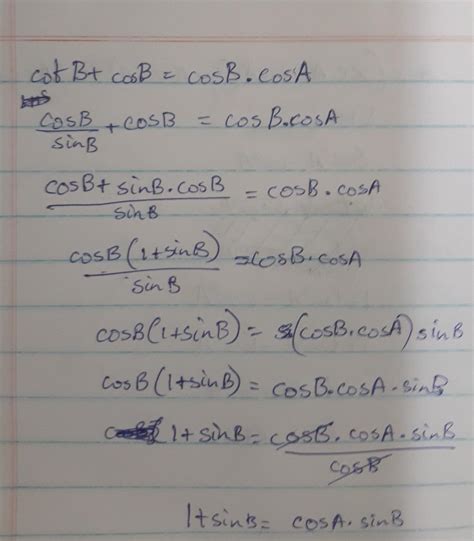 cot B + cosB = cosB · cosA
cosB/sinB + cosB = cosB·cosA
cosB + sinB·cosB/sinB = cosB·cosA
cosB(1+sinB)/sinB = cosB·cosA
cosB(1+sinB) = (cosB·cosA) sinB
cosB(1+sinB) = cosB·cosA·sinB
1+sinB = cosB·cosA·sinB/cosB
1+sinB = cosA·sinB